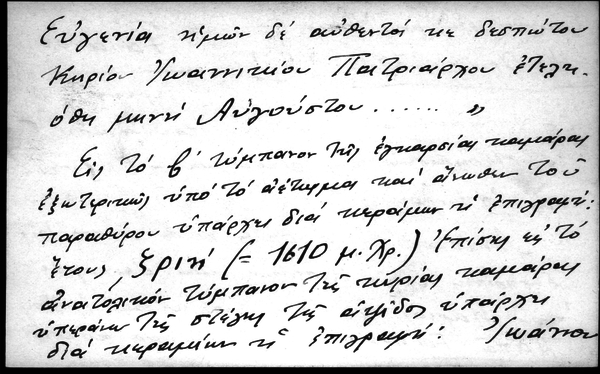 Εὐγενία ἡμῶν δέ αὐθεντοί κε δεσπώτου
Κυρίου Ἰωαννικίου Πατριάρχου ἐτελη-
όθη μηνί Αὐγούστου ...... "
Εἰς τό β' τύμπανον τῆς ἐγκαρσίας καμάρας
ἐξωτερικῶς ὑπό τό ἀέτωμα καί ἄνωθεν τοῦ
παραθύρου ὑπάρχει διά κεράμων ἡ ἐπιγραφή:
ἔτους ,ζριή (= 1610 μ.Χρ.) Ἐπίσης εἰς τό
ἀνατολικόν τύμπανον τῆς κυρίας καμάρας
ὑπεράνω τῆς στέγης τῆς ἁψῖδος ὑπάρχει
διά κεραμίων ἡ ἐπιγραφή: Ἰωάννου